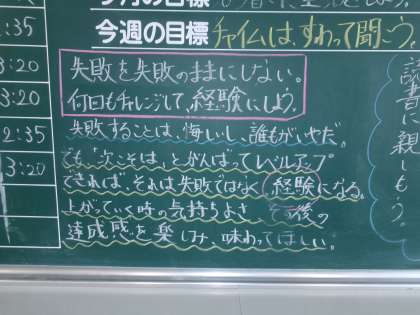 今週の目標 チャイムは、すわって聞こう。
失敗を失敗のままにしない。
何回もチャレンジして、経験にしよう。
失敗することは、悔しいし、誰もがいやだ。
でも「次こそは」とがんばってレベルアップ
できれば、それは失敗ではなく経験になる。
上がっていく時の気持ちよさ、その後の
達成感を楽しみ、味わってほしい。
2:35
3:20
3:20
2:35
3:20
読書に親しもう。